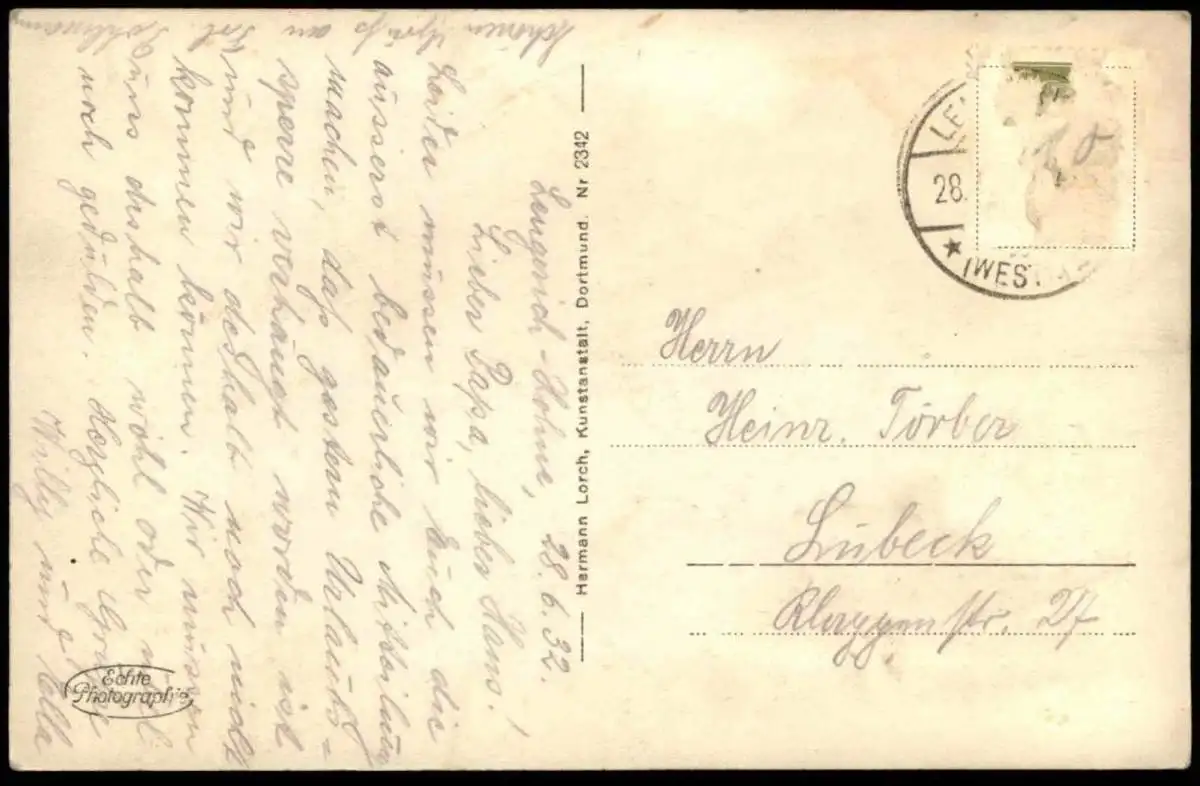 Lengerich-Hohne, 28.6.32.
Lieber Papa, lieber Hans!
Leider müssen wir Euch die
äusserst bedauerliche Mitteilung
machen, daß gestern Urlaubs-
sperre verhängt worden ist
und wir deshalb noch nicht
kommen können. Wir müssen
uns deshalb wohl oder übel
noch gedulden. Herzliche Grüße
Willy und Ella
Schönen Gruß an
Hermann Lorch, Kunstanstalt, Dortmund. Nr 2342
Echte
Photographie
28.
(WEST
Herrn
Heinr. Törber
Lübeck
Str. 27